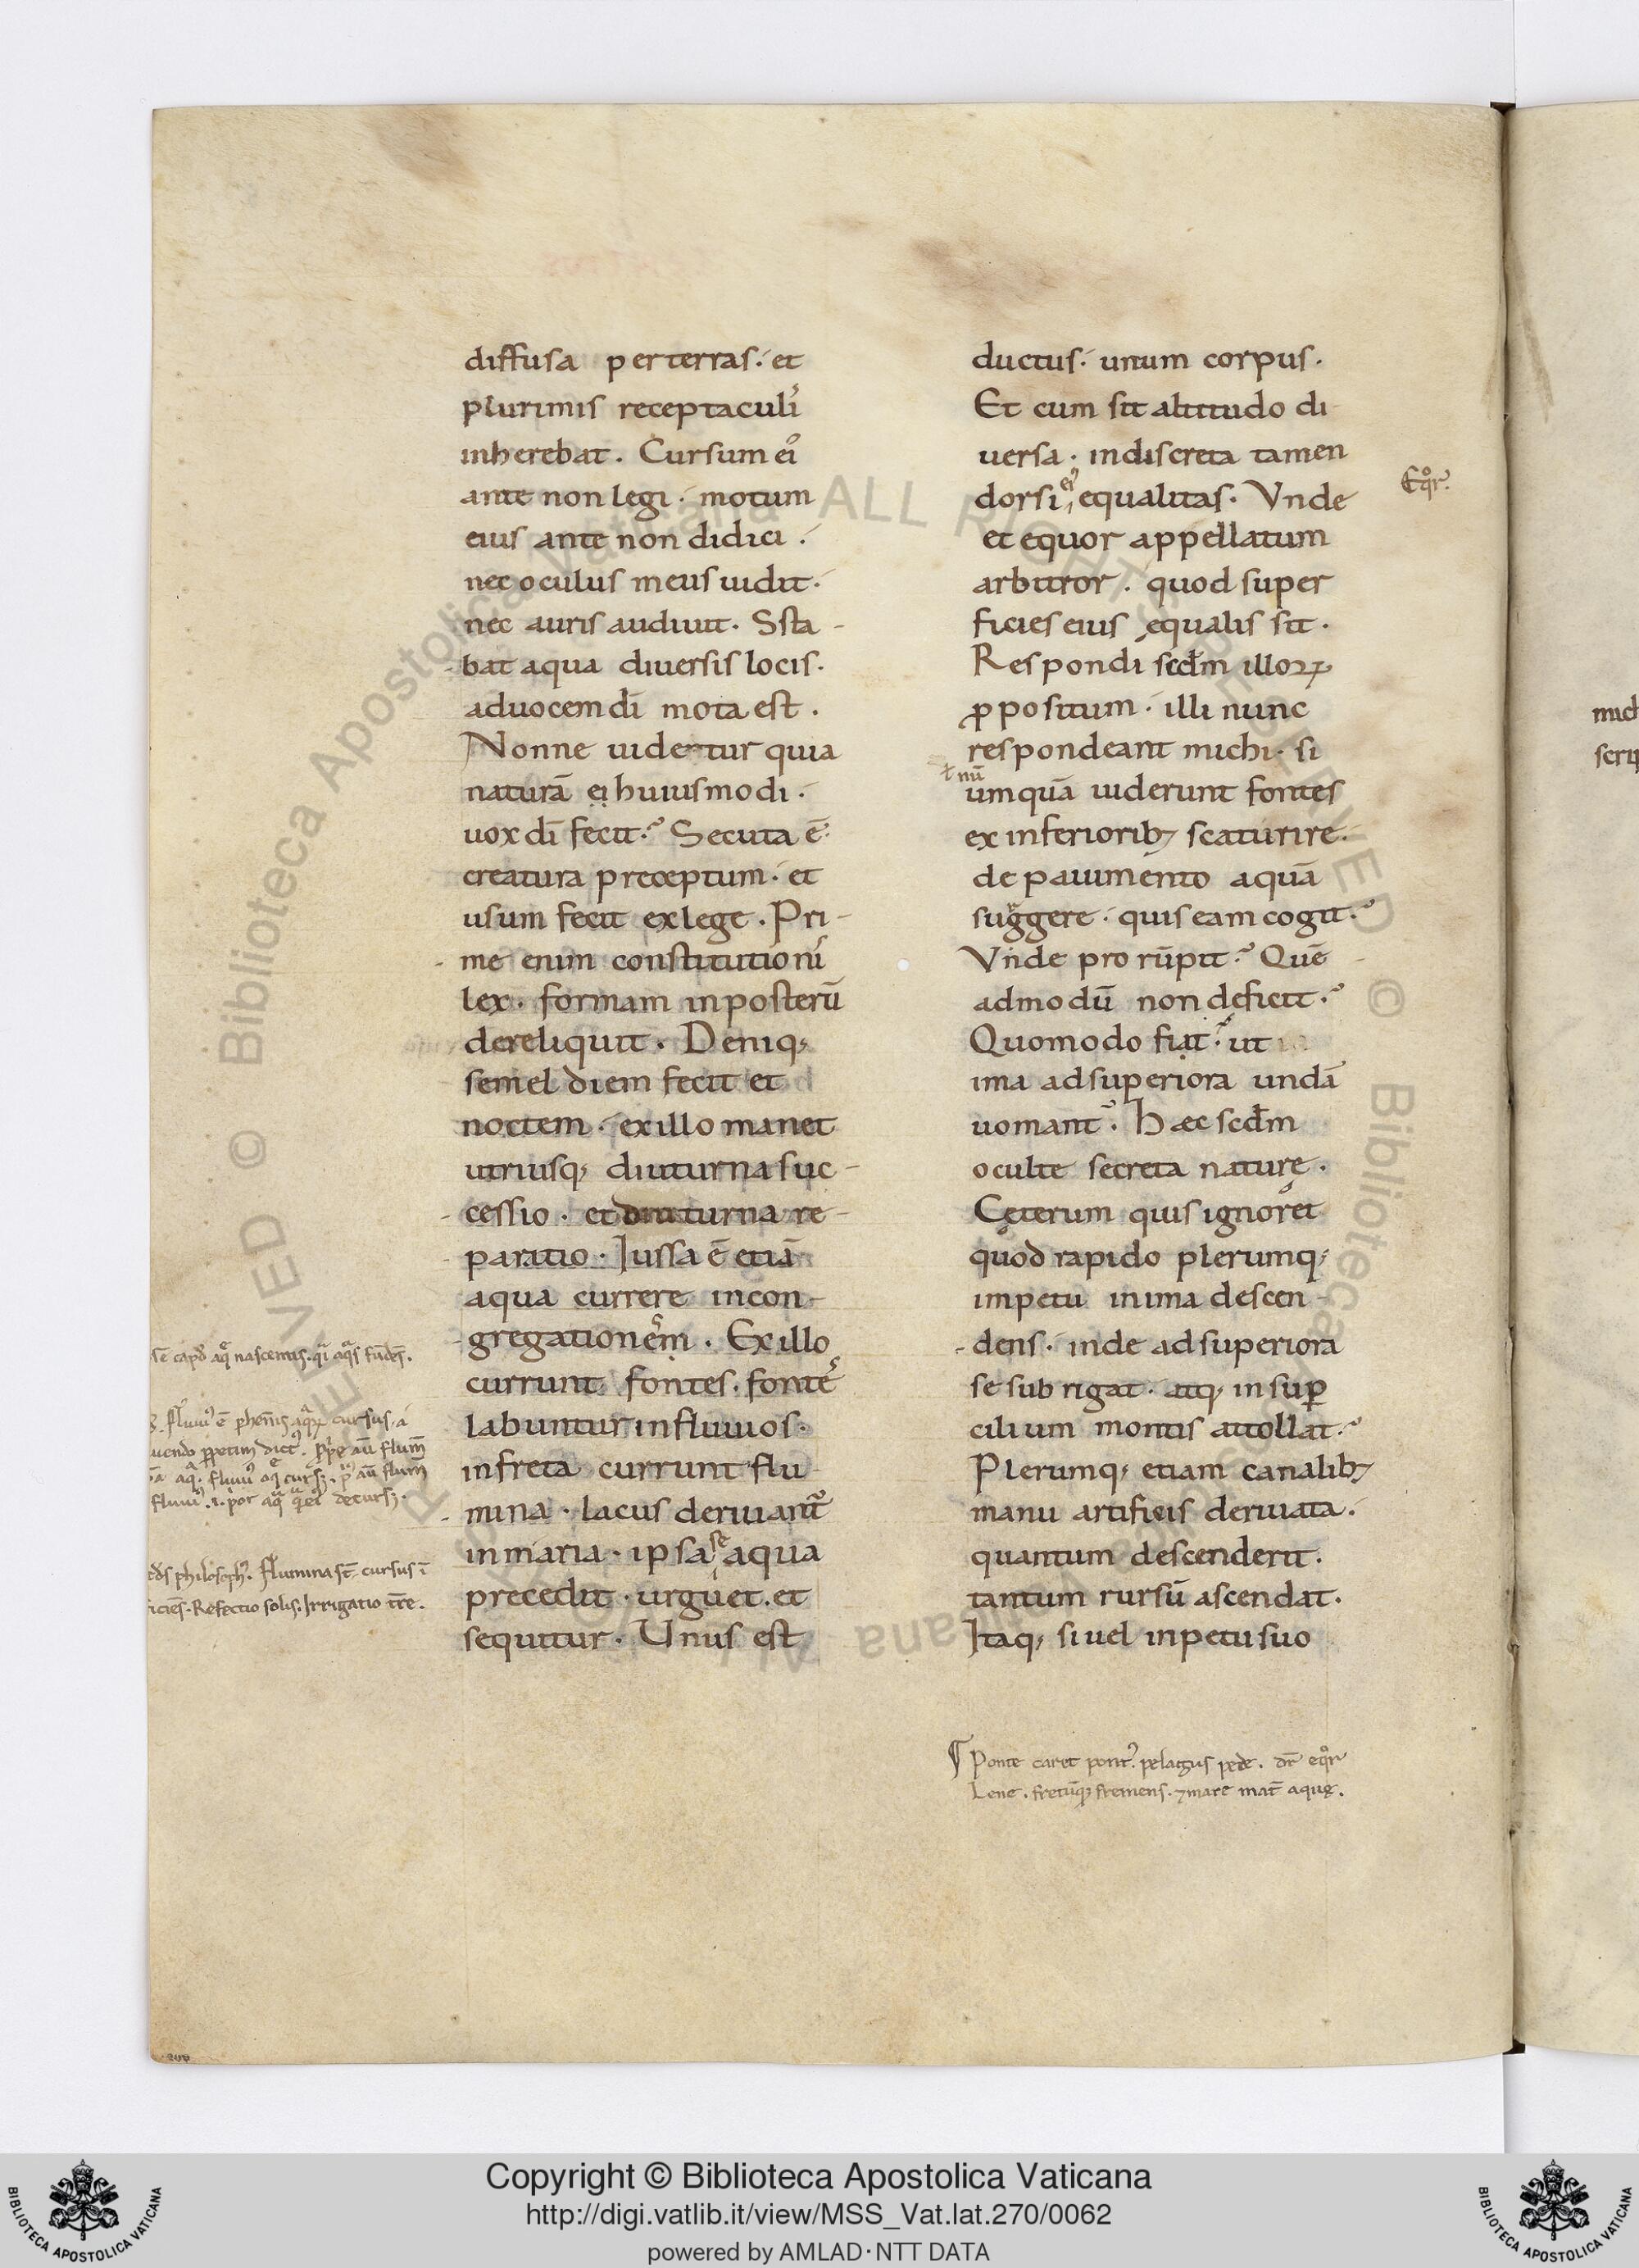 diffusa per terras. et
plurimis receptaculi᷒
inherebat. Cursum ei᷒
ante non legi. motum
eius ante non didici.
nec oculus meus uidit.
nec auris audiuit. Ssta-
bat aqua diuersis locis.
ad uocem dī mota est.
Nonne uidetur quia
naturā ei huiusmodi.
uox dī fecit? Secuta ē
creatura preceptum. et
usum fecit ex lege. Pri-
me enim constitutioni᷒
lex. formam in posterū
dereliquit. Deniq;
semel diem fecit et
noctem. ex illo manet
utriusq; diuturna suc-
cessio. et diuturna re-
paratio. Iussa ē etiā
aqua currere in con-
gregationem. Ex illo
currunt fontes. fontes
labuntur in fluuios.
in freta currunt flu
mina. lacus deriuant᷑
in maria. ipsa se aqua
precedit. urguet. et
sequitur. Unus est
ductus. unum corpus.
Et cum sit altitudo di
uersa. indiscreta tamen
dorsi ei᷒ equalitas. Vnde
et equor appellatum
arbitror. quod super
ficies eius ęqualis sit.
Respondi scđm illoꝝ
ꝓpositum. illi nunc
respondeant michi. si
ł nū
umquā uiderunt fontes
ex inferiorib; scaturire.
de pauimento aquā
suggere. quis eam cogit?
Vnde prorūpit? Quē
admodū non deficit?
Quomodo fiat? ut
ima ad superiora undā
uomant? Haec scđm
oculte secreta naturę.
Cęterum quis ignoret
quod rapido plerumq;
impetu in ima descen-
dens. inde ad superiora
se subrigat. atq; in suꝑ
cilium montis attollat?
Plerumq; etiam canalib;
manu artificis deriuata.
quantum descenderit.
tantum rursū ascendat.
Itaq; si uel inpetu suo
Eqᵒr.
nascentis.
cursus
fluminasī cursus ī
Refectio solis. Irrigatio tr̄e.
¶ Ponte caret pont᷒. pelagus pede. dr̄ eqᵒr
Lene. fretūq; fremens. ⁊ mare mat̄ aquę.
mich
Copyright © Biblioteca Apostolica Vaticana
http://digi.vatlib.it/view/MSS_Vat.lat.270/0062
powered by AMLAD·NTT DATA
BIBLIOTECA APOSTOLICA VATICANA
BIBLIOTECA APOSTOLICA VATICANA